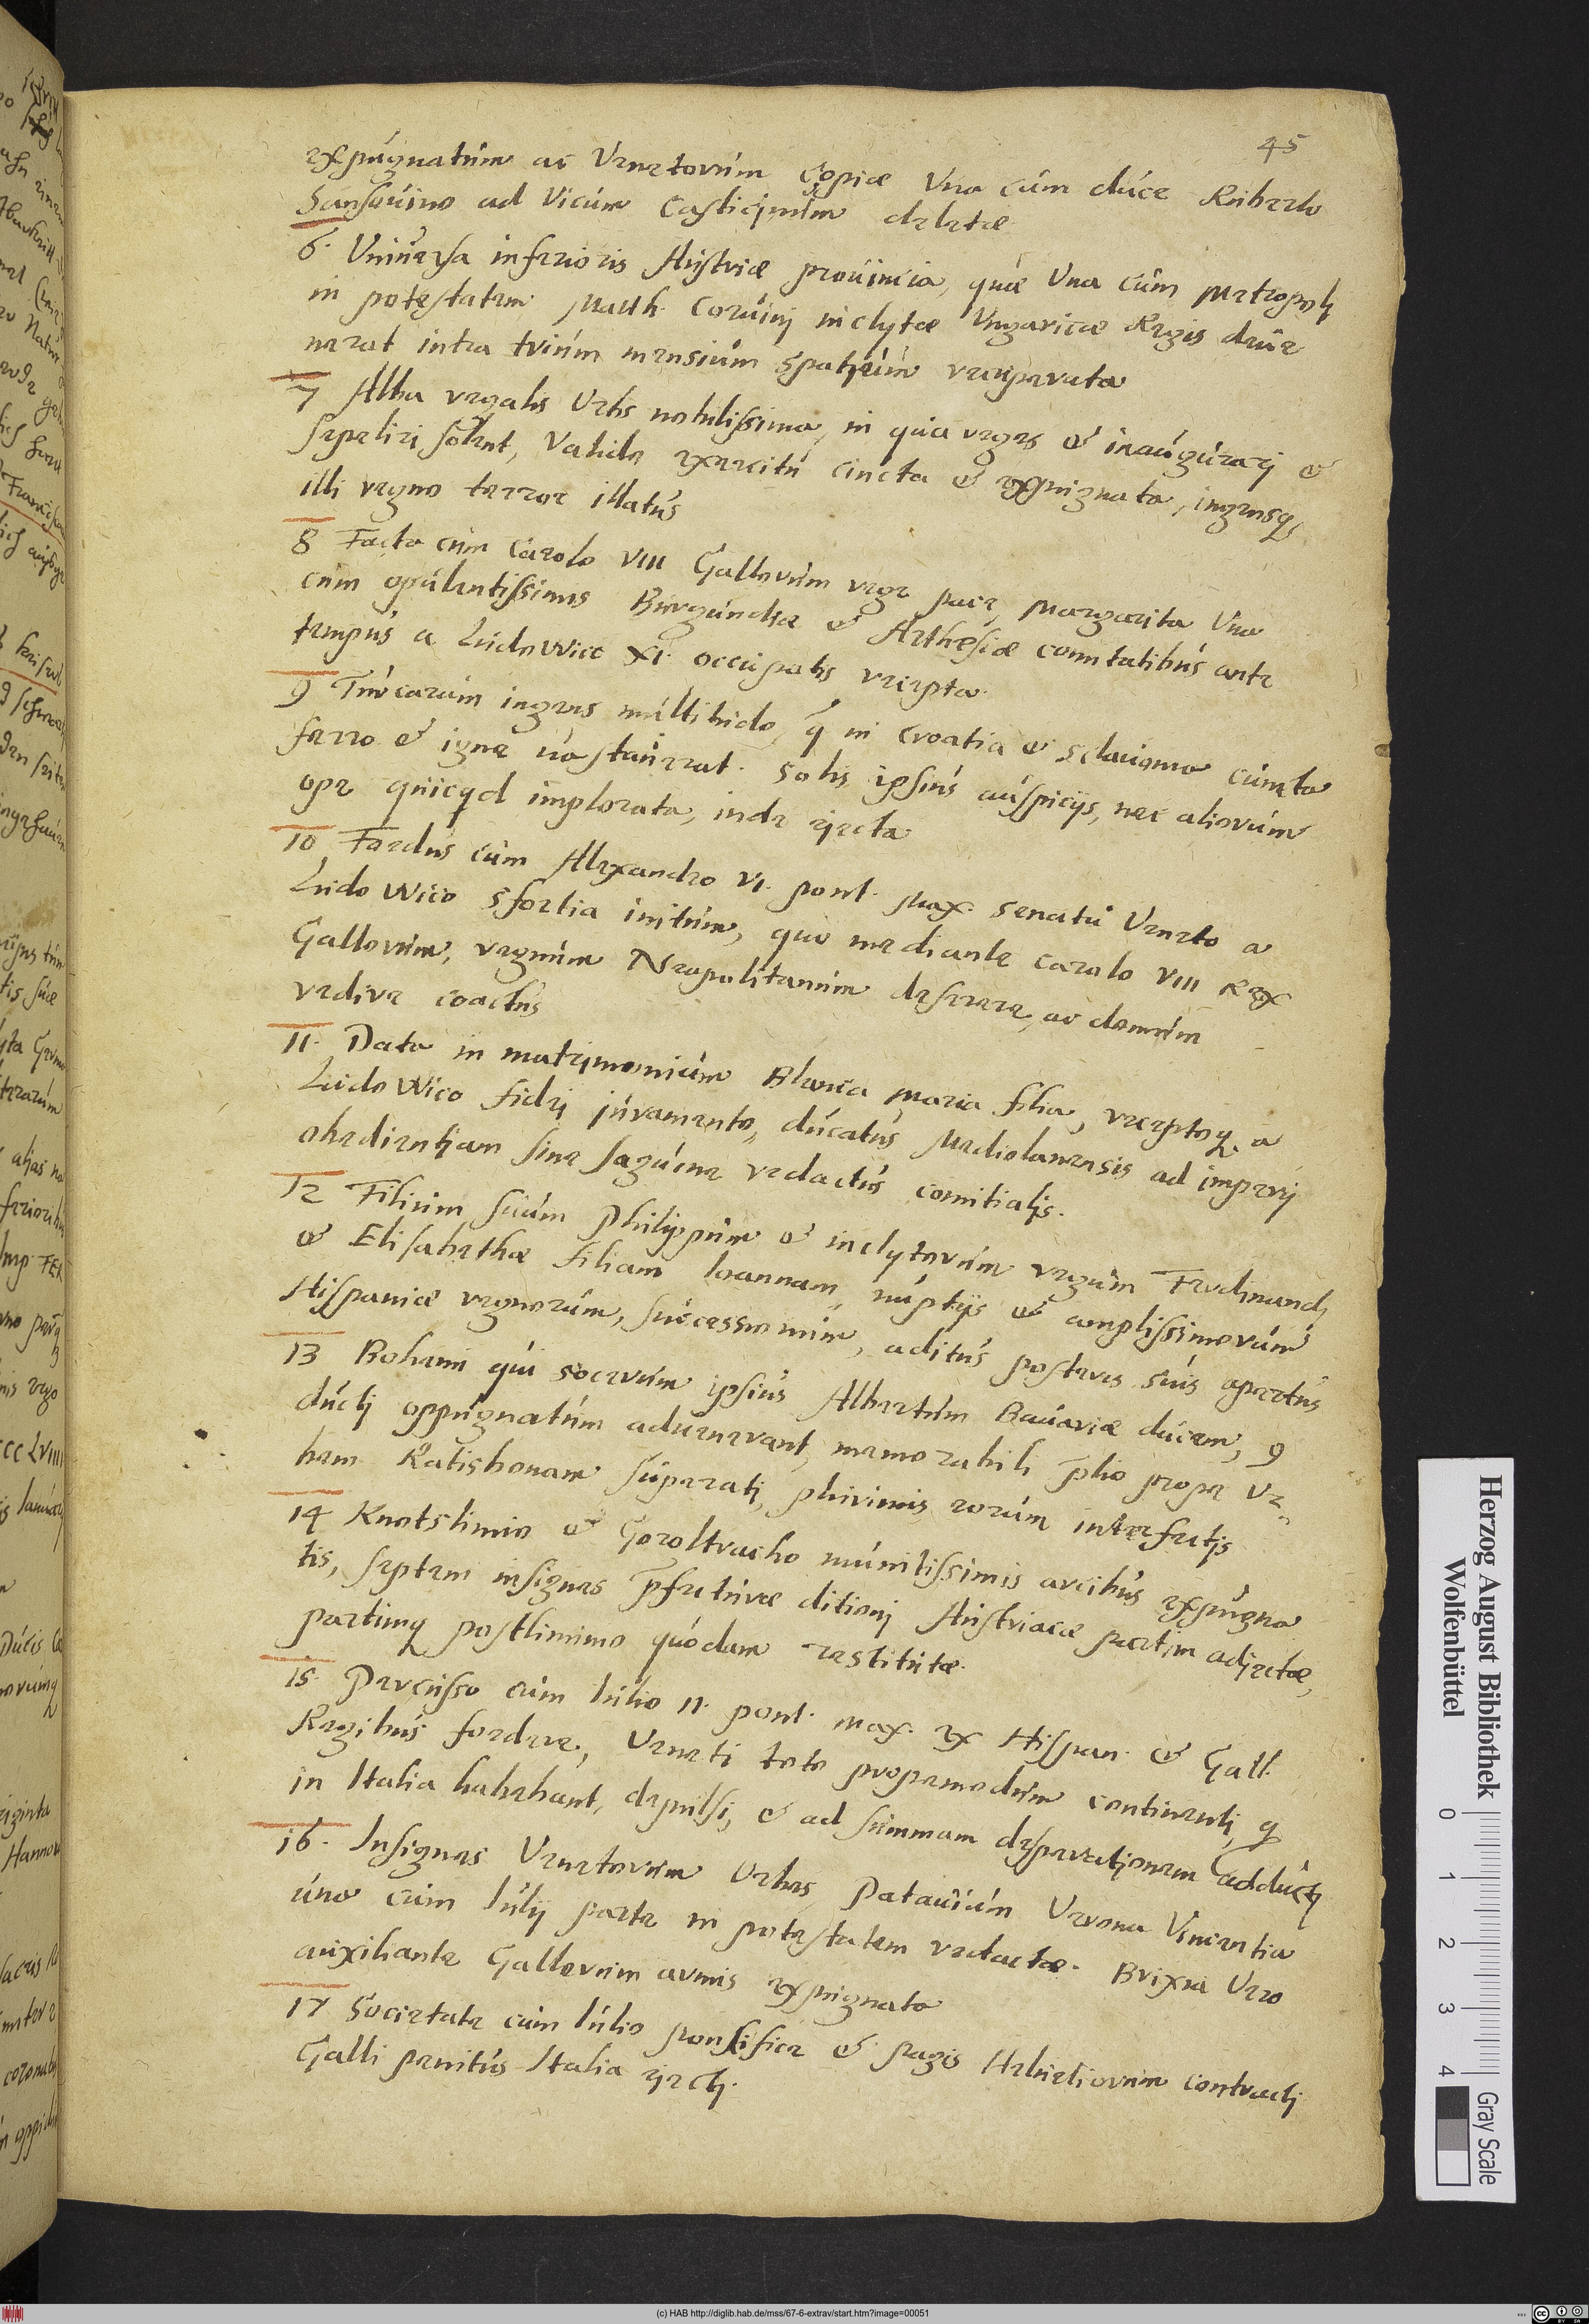 45
expugnatum ac Venetorum copiæ Vna cum duce Ruberto
Sanseuino ad Vicum Casticinum deletæ
6. Vniuersa inferioris Austriæ prouincia, quæ Vna cum Metropoli
in potestatem Math. Coruini inclytæ Vngaricæ Regis deue
nerat intra trium mensium spatium recuperata
7 Alba regalis Vrbs nobilissima, in qua reges et inaugurarj et
sepeliri solent, Valido exercitu cincta et expugnata, ingensq
illi regno terror illatus
8 Facta cum Carolo VIII Gallorum rege pace, Margarita Vna
cum opulentissimis Burgundiæ et Arthesiæ comitatibus ante
tempus a LudoWico XI. occupatis recepta.
9 Turcarum ingens multitudo, q̃ in Croatia et Sclauonia cuncta
ferro et igne uastauerat. solis ipsius auspicijs, nec aliorum
ope quicqd implorata, inde ejecta
10 Foedus cum Alexandro VI. pont. Max. senatu Veneto a
LudoWico Sfortia initum, quo mediante Carolo VIII Rex
Gallorum, regnum Neapolitanum deserere, ac domum
redire coactus
11. Data in matrjmonium Blanca Maria filia, receptoq a
LudoWico fidej juramento, ducatus Mediolanensis ad imperij
obedientjam sine sagúine redactus comitialjs.
12 Filium suum Philippum et inclytorum regum Ferdjnandj
et Elisabethæ filiam Ioannam, nuptijs et amplissimorum
Hispaniæ regnorum, successionum, aditus posteris suis apertus
13 Bohemi qui socerum ipsius Albertum Bauariæ ducem, 9
ductj oppugnatum aduenerant, memorabili p̃lio prope Vr-
bem Ratisbonam superatj, plurimis eorum interfectjs
14 Knotslinio et Geroltzecho munitissimis arcibus expugna
tis, septem insignes p̃fecturæ ditionj Austriacæ partim adjectæ,
partimq postliminio quodam restitutæ.
15. Percusso cum Iulio II. pont. max. ex Hispan. et Gall.
Regibus foedere, Veneti toto propemodum continentj, q̃
in Italia habebant, depulsi, et ad summam desperatjonem adductj
16. Insignes Venetorum Vrbes, Patauium Verona Vincentia
una cum Iulij parte in potestatem redactæ. Brixia Vero
auxiliante Gallorum armis expugnata
17 Societate cum Iulio pontifice et pagis Heluetiorum contractj
Galli penitus Italia ejectj.
Herzog August Bibliothek
Wolfenbüttel
0 1 2 3 4
Gray Scale
(c) HAB http://diglib.hab.de/mss/67-6-extrav/start.htm?image=00051